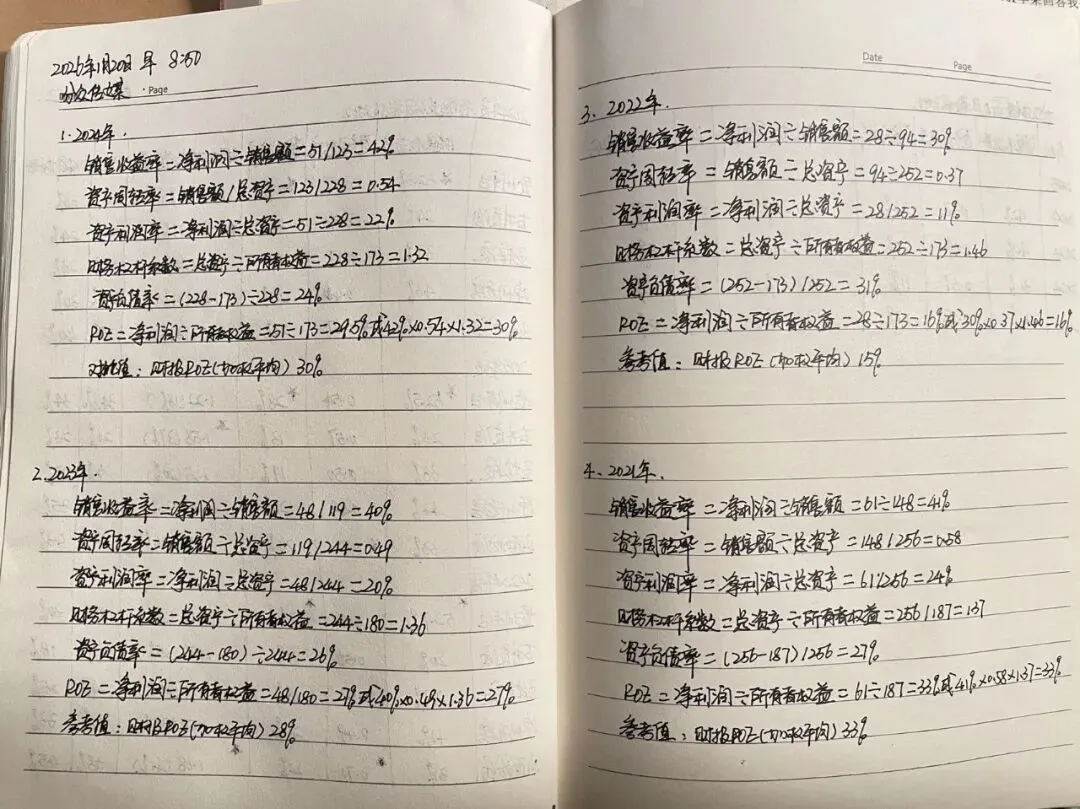 2026年1月20日 早 8:50
分众传媒 · Page
1. 2024年.
销售收益率=净利润÷销售额=51/123=42%
资产周转率=销售额/总资产=123/228=0.54
资产利润率=净利润÷总资产=51÷228=22%
财务杠杆系数=总资产÷所有者权益=228÷173=1.32
资产负债率=(228-173)÷228=24%
ROE=净利润÷所有者权益=51÷173=29.5%或42%×0.54×1.32=30%
对比值:财报ROE(加权平均)30%
2. 2023年.
销售收益率=净利润÷销售额=48/119=40%
资产周转率=销售额÷总资产=119/244=0.49
资产利润率=净利润÷总资产=48/244=20%
财务杠杆系数=总资产÷所有者权益=244÷180=1.36
资产负债率=(244-180)÷244=26%
ROE=净利润÷所有者权益=48/180=27%或40%×0.49×1.36=27%
参考值:财报ROE(加权平均)28%
Date Page
3. 2022年.
销售收益率=净利润÷销售额=28÷94=30%
资产周转率=销售额÷总资产=94÷252=0.37
资产利润率=净利润÷总资产=28/252=11%
财务杠杆系数=总资产÷所有者权益=252÷173=1.46
资产负债率=(252-173)/252=31%
ROE=净利润÷所有者权益=28÷173=16%或30%×0.37×1.46=16%
参考值:财报ROE(加权平均)15%
4. 2021年.
销售收益率=净利润÷销售额=61÷148=41%
资产周转率=销售额÷总资产=148/256=0.58
资产利润率=净利润÷总资产=61/256=24%
财务杠杆系数=总资产÷所有者权益=256/187=1.37
资产负债率=(256-187)/256=27%
ROE=净利润÷所有者权益=61÷187=33%或41%×0.58×1.37=33%
参考值:财报ROE(加权平均)33%